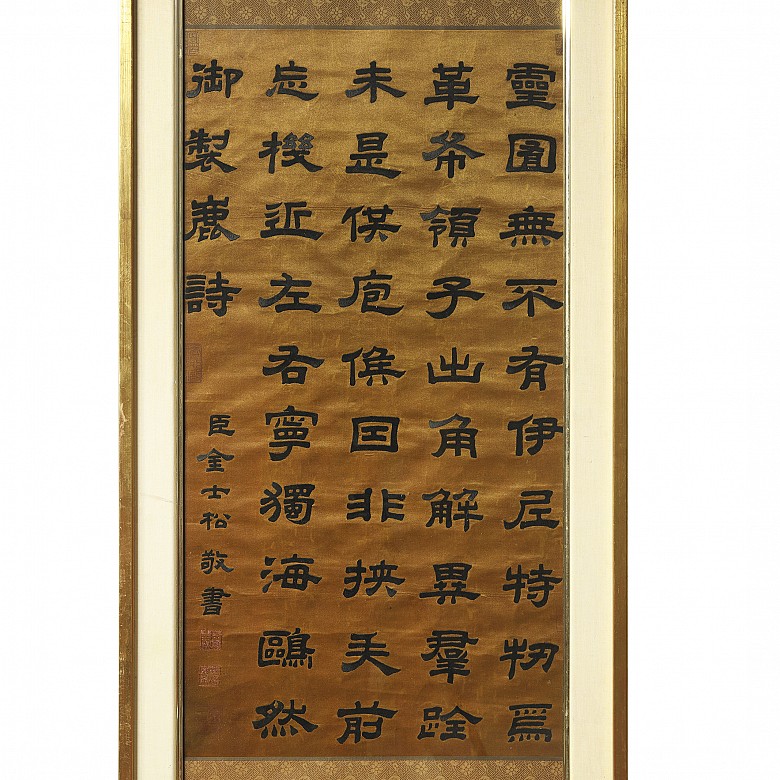 靈囿無不有伊尼特牣焉
革希領子出角解異羣跧
未是供庖俟因非挾矢前
忘機近左右寧獨海鷗然
御製鹿詩
臣金士松敬書